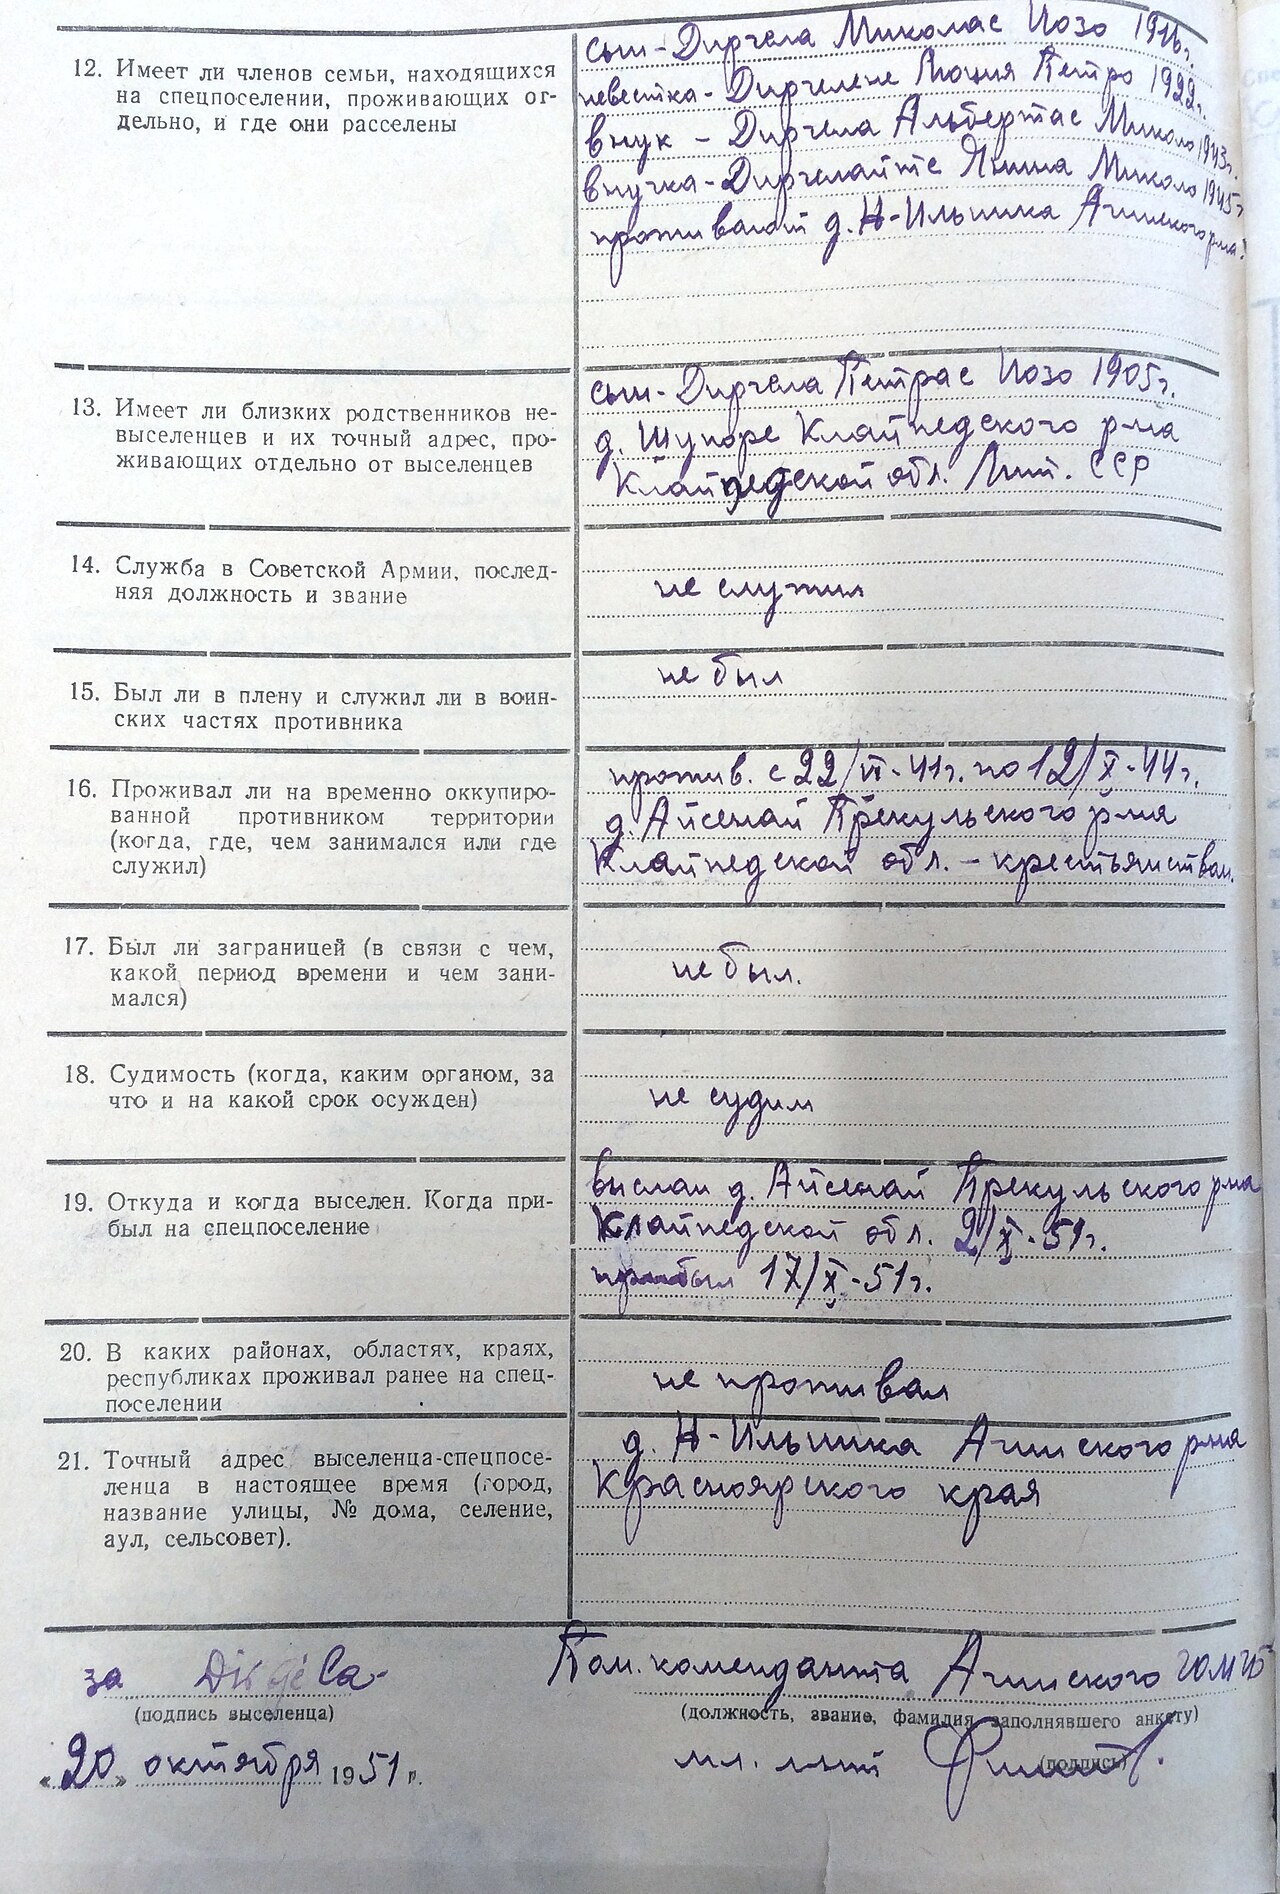 12. Имеет ли членов семьи, находящихся
на спецпоселении, проживающих от-
дельно, и где они расселены
сын - Диргела Миколас Иозо 1916г.
невестка - Диргелене Люция Петро 1922г.
внук - Диргела Альбертас Миколо 1943г.
внучка - Диргелайте Янина Миколо 1945г
проживают д. Н-Ильинка Ачинского р-на.
13. Имеет ли близких родственников не-
выселенцев и их точный адрес, про-
живающих отдельно от выселенцев
сын - Диргела Петрас Иозо 1905г.
д. Шупоре Клайпедского р-на
Клайпедской обл. Лит. ССР
14. Служба в Советской Армии, послед-
няя должность и звание
не служил
15. Был ли в плену и служил ли в воин-
ских частях противника
не был
16. Проживал ли на временно оккупиро-
ванной противником территории
(когда, где, чем занимался или где
служил)
прожив. с 22/VI-41г. по 12/X-44г.
д. Айсенай Прекульского р-на
Клайпедской обл. - крестьянствовал.
17. Был ли заграницей (в связи с чем,
какой период времени и чем зани-
мался)
не был.
18. Судимость (когда, каким органом, за
что и на какой срок осужден)
не судим
19. Откуда и когда выселен. Когда при-
был на спецпоселение
выслан д. Айсенай Прекульского р-на
Клайпедской обл. 2/X-51г.
прибыл 17/X-51г.
20. В каких районах, областях, краях,
республиках проживал ранее на спец-
поселении
не проживал
21. Точный адрес выселенца-спецпосе-
ленца в настоящее время (город,
название улицы, № дома, селение,
аул, сельсовет).
д. Н-Ильинка Ачинского р-на
Красноярского края
за Dirgėla
(подпись выселенца)
«20» октября 1951 г.
Пом. коменданта Ачинского ГОМГБ
(должность, звание, фамилия заполнявшего анкету)
мл. л-нт
(подпись)